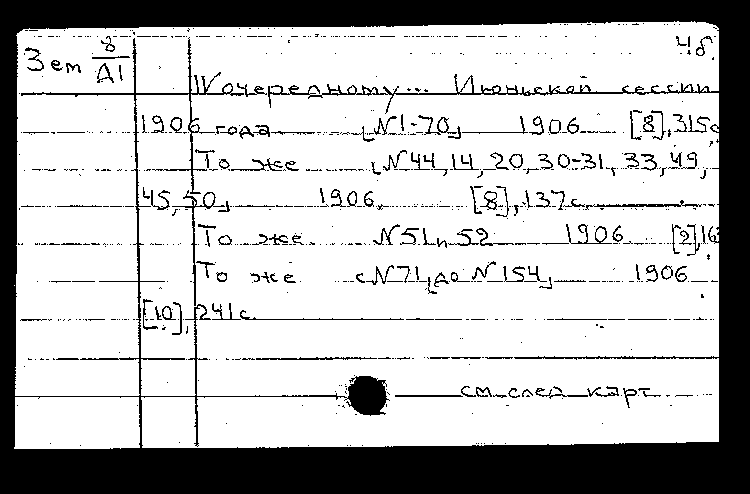 4б.
Зем 8/Д1
IV очередному... Июньской сессии
1906 года ⌊N1-70⌋ 1906 [8], 315с
То же ⌊N44, 14, 20, 30-31, 33, 49,
45, 50⌋ 1906. [8], 137с.
То же. N51 и 52 1906 [2], 163
То же с N71 ⌊до N154⌋ 1906.
[10], 241с.
см. след карт.